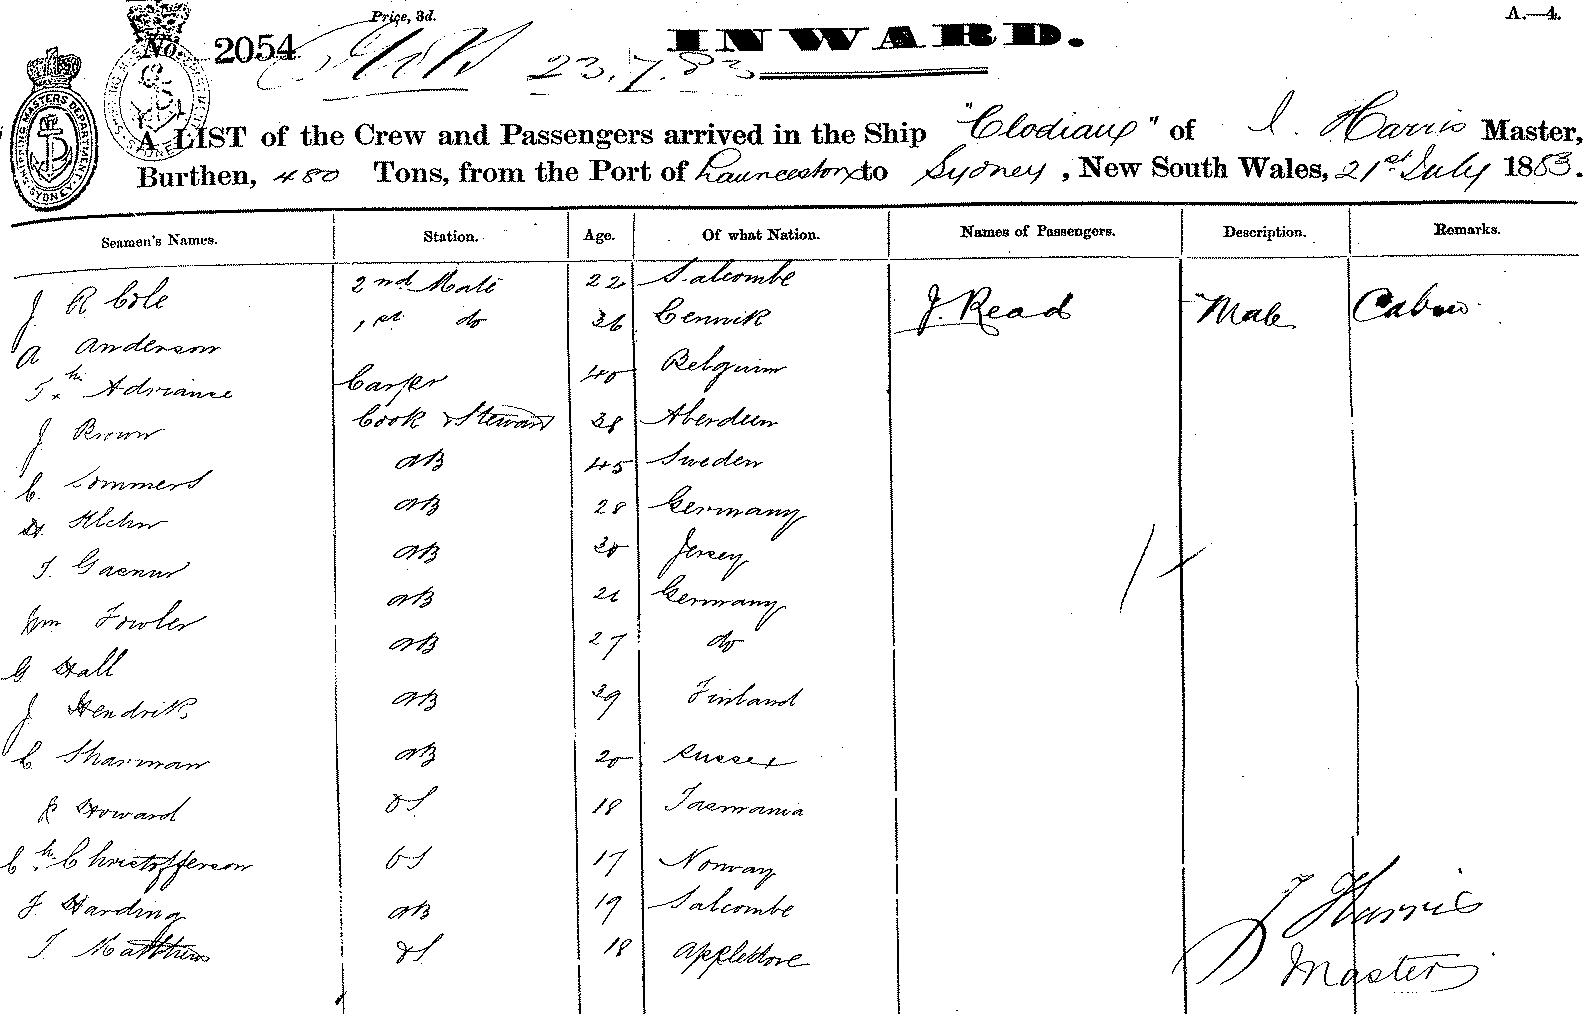 Price, 3d.
A.—4.
No. 2054
23.7.83
INWARD.
A LIST of the Crew and Passengers arrived in the Ship "Clodian" of J. Harris Master,
Burthen, 480 Tons, from the Port of Launceston to Sydney, New South Wales, 21st July 1883.
Seamen's Names. Station. Age. Of what Nation. Names of Passengers. Description. Remarks.
J R Cole 2nd Mate 22 Salcombe J. Read Male Cabin
A Anderson 1st do 36 
Th Adrianse Carpr 40 Belguim
J Brown Cook & Steward 38 Aberdeen
C. Sommers AB 45 Sweden
H. AB 28 Germany
J. AB 30 Jersey
Wm Fowler AB 26 Germany
G Hall AB 27 do
J Hendrik AB 39 Finland
C Sharman AB 20 Sussex
R Howard OS 18 Tasmania
Ch Christofferson OS 17 Norway
J. Harding AB 19 Salcombe
J. Matthews OS 18 Appledore
J Harris
Master